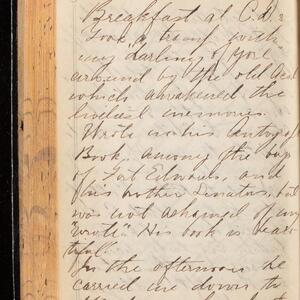 Breakfast at C.D.s
Took a tramp with
my "Darling of York"
around by the old Aca
which awakened the
livliest memories.
Wrote in his Autograph
Book, among the boys
of Fort Edward, and
his brother Senators, but
was not ashamed of my
"wrote". His book is beau-
tiful.
In the afternoon he
carried me down to